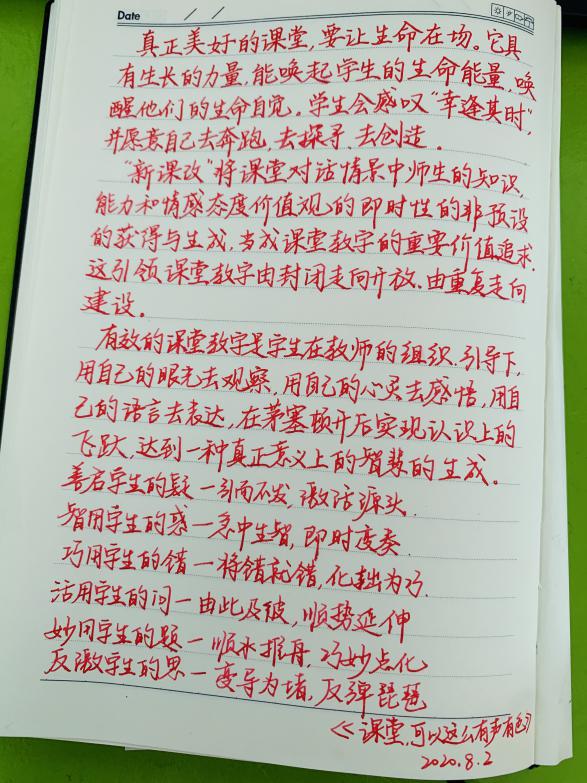 Date / /
真正美好的课堂,要让生命在场。它具
有生长的力量,能唤起学生的生命能量,唤
醒他们的生命自觉。学生会感叹“幸逢其时”,
并愿意自己去奔跑,去探寻,去创造。
“新课改”将课堂对话情景中师生的知识,
能力和情感态度价值观的即时性的非预设
的获得与生成,当成课堂教学的重要价值追求,
这引领课堂教学由封闭走向开放、由重复走向
建设。
有效的课堂教学是学生在教师的组织、引导下,
用自己的眼光去观察,用自己的心灵去感悟,用自
己的语言去表达,在茅塞顿开后实现认识上的
飞跃,达到一种真正意义上的智慧的生成。
善启学生的疑—引而不发,激活源头.
智用学生的惑—急中生智,即时变奏.
巧用学生的错—将错就错,化拙为巧.
活用学生的问—由此及彼,顺势延伸
妙用学生的题—顺水推舟,巧妙点化
反激学生的思—变导为堵,反弹琵琶
《课堂,可以这么有声有色》
2020.8.2